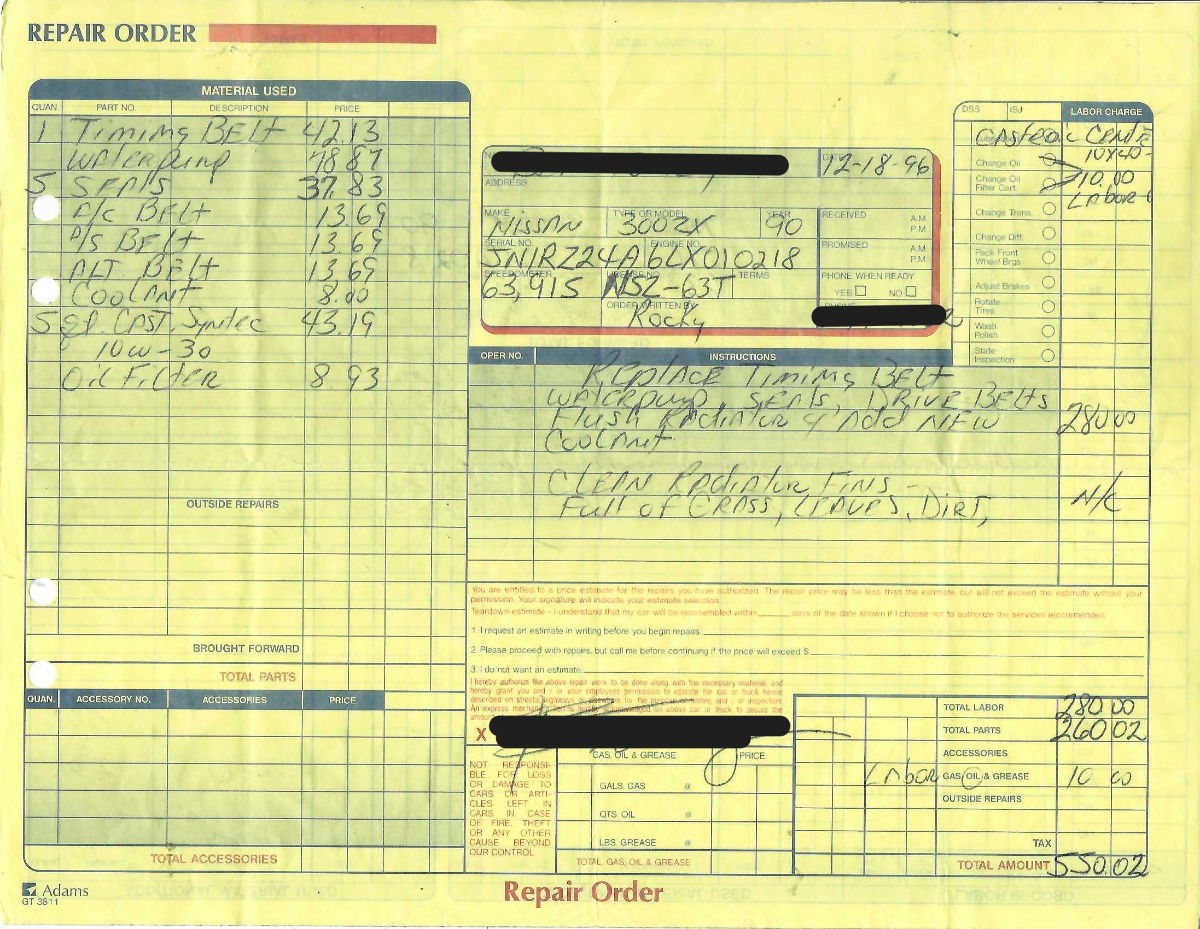 REPAIR ORDER
MATERIAL USED
QUAN. PART NO. DESCRIPTION PRICE
1 Timing BELT 42.13
WATERpump 78.87
5 SEALS 37.83
A/C BELT 13.69
P/S BELT 13.69
ALT BELT 13.69
COOLANT 8.00
5 qt. CAST. Syntec 43.19
10W-30
Oil FilTER 8 93
OUTSIDE REPAIRS
BROUGHT FORWARD
TOTAL PARTS
QUAN. ACCESSORY NO. ACCESSORIES PRICE
TOTAL ACCESSORIES
Adams
GT 3811
12-18-96
ADDRESS
MAKE TYPE OR MODEL YEAR
NISSAN 300ZX 90
RECEIVED A.M. P.M.
SERIAL NO. ENGINE NO.
JN1RZ24A6LX010218
PROMISED A.M. P.M.
SPEEDOMETER LICENSE NO. TERMS
63,915 NSZ-63T
PHONE WHEN READY
YES NO
ORDER WRITTEN BY
Rocky
DSS ISJ LABOR CHARGE
CASTROL
Change Oil 10W40-
Change Oil Filter Cart. 10.00
LABOR
Change Trans.
Change Diff.
Pack Front Wheel Brgs.
Adjust Brakes
Rotate Tires
Wash Polish
State Inspection
OPER NO. INSTRUCTIONS
REPLACE Timing BELT
WATERpump, SEALS, DRIVE BELTS
Flush Radiator & Add NEW 280 00
COOLANT
CLEAN Radiator Fins -
Full of GRASS, LEAVES, DIRT, N/C
You are entitled to a price estimate for the repairs you have authorized. The repair price may be less than the estimate, but will not exceed the estimate without your
permission. Your signature will indicate your estimate selection.
Teardown estimate - I understand that my car will be reassembled within days of the date shown if I choose not to authorize the services recommended.
1. I request an estimate in writing before you begin repairs.
2. Please proceed with repairs, but call me before continuing if the price will exceed $
3. I do not want an estimate.
I hereby authorize the above repair work to be done along with the necessary material, and
hereby grant you and / or your employees permission to operate the car or truck herein
described on streets, highways or elsewhere for the purpose of testing and / or inspection.
An express mechanic's lien is hereby acknowledged on above car or truck to secure the
amount
X
NOT RESPONSI-
BLE FOR LOSS
OR DAMAGE TO
CARS OR ARTI-
CLES LEFT IN
CARS IN CASE
OF FIRE, THEFT
OR ANY OTHER
CAUSE BEYOND
OUR CONTROL
GAS, OIL & GREASE PRICE
GALS. GAS @
QTS. OIL @
LBS. GREASE @
TOTAL GAS, OIL & GREASE
TOTAL LABOR 280 00
TOTAL PARTS 260 02
ACCESSORIES
LABOR GAS, OIL & GREASE 10 00
OUTSIDE REPAIRS
TAX
TOTAL AMOUNT 550.02
Repair Order